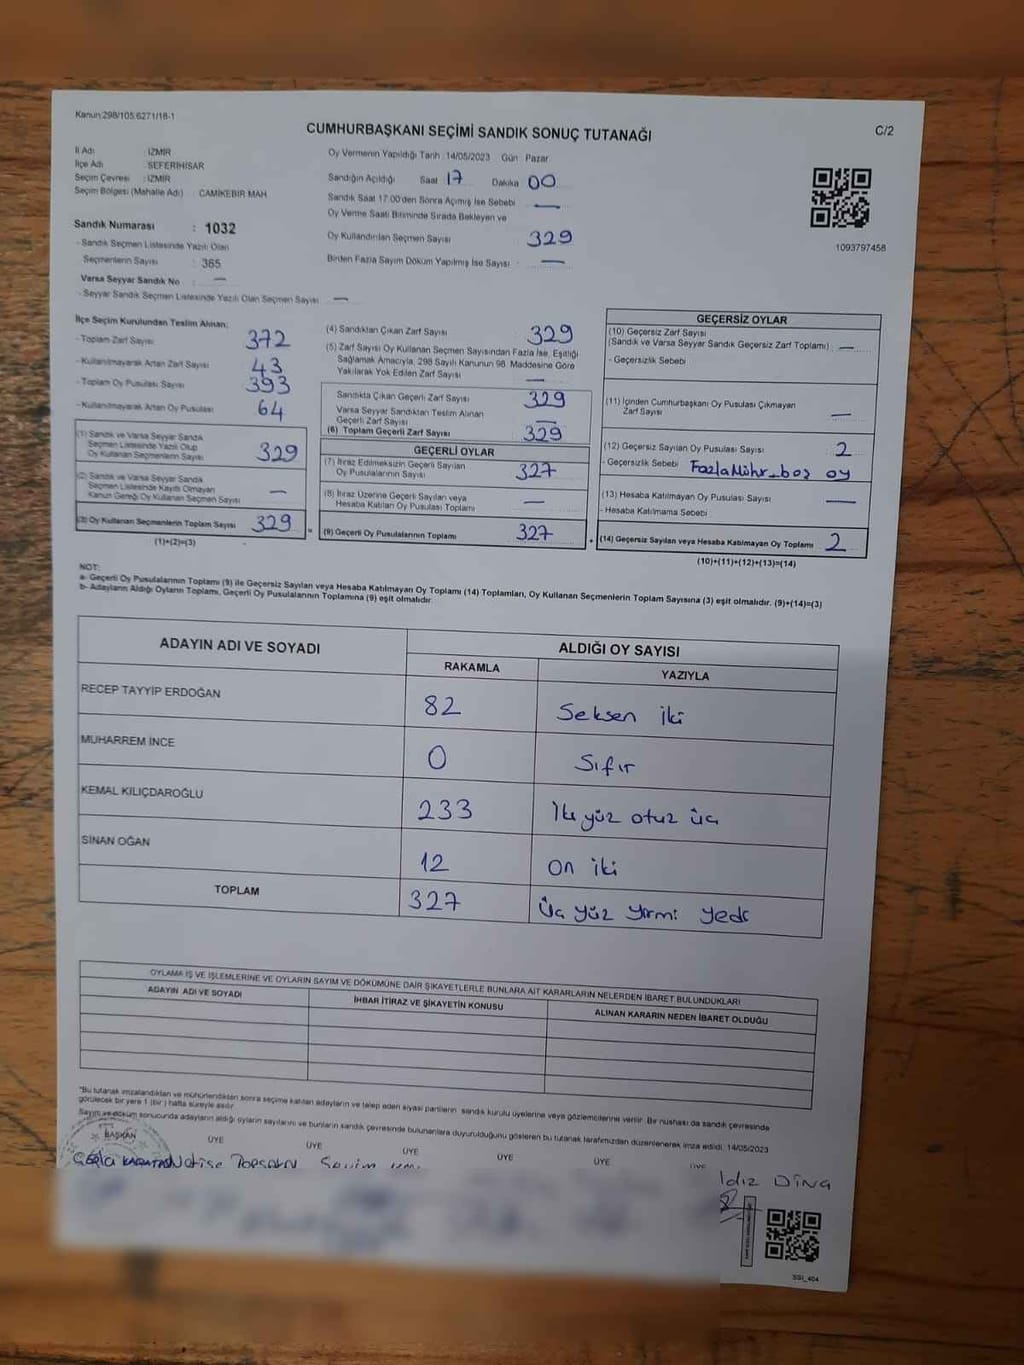 Kanun:298/105,6271/18-1
CUMHURBAŞKANI SEÇİMİ SANDIK SONUÇ TUTANAĞI
C/2
İl Adı : İZMİR
İlçe Adı : SEFERİHİSAR
Seçim Çevresi : İZMİR
Seçim Bölgesi (Mahalle Adı) : CAMİKEBİR MAH
Sandık Numarası : 1032
- Sandık Seçmen Listesinde Yazılı Olan
Seçmenlerin Sayısı : 365
Varsa Seyyar Sandık No : —
- Seyyar Sandık Seçmen Listesinde Yazılı Olan Seçmen Sayısı : —
Oy Vermenin Yapıldığı Tarih :14/05/2023 Gün : Pazar
Sandığın Açıldığı Saat 17 Dakika 00
Sandık Saat 17.00'den Sonra Açımış İse Sebebi —
Oy Verme Saati Bitiminde Sırada Bekleyen ve
Oy Kullandırılan Seçmen Sayısı 329
Birden Fazla Sayım Döküm Yapılmış İse Sayısı : —
1093797458
İlçe Seçim Kurulundan Teslim Alınan;
- Toplam Zarf Sayısı 372
- Kullanılmayarak Artan Zarf Sayısı 43
- Toplam Oy Pusulası Sayısı 393
- Kullanılmayarak Artan Oy Pusulası 64
(1) Sandık ve Varsa Seyyar Sandık
Seçmen Listesinde Yazılı Olup
Oy Kullanan Seçmenlerin Sayısı 329
(2) Sandık ve Varsa Seyyar Sandık
Seçmen Listesinde Kayıtlı Olmayan
Kanun Gereği Oy Kullanan Seçmen Sayısı —
(3) Oy Kullanan Seçmenlerin Toplam Sayısı 329
(1)+(2)=(3)
(4) Sandıktan Çıkan Zarf Sayısı 329
(5) Zarf Sayısı Oy Kullanan Seçmen Sayısından Fazla İse, Eşitliği
Sağlamak Amacıyla, 298 Sayılı Kanunun 98. Maddesine Göre
Yakılarak Yok Edilen Zarf Sayısı —
Sandıkta Çıkan Geçerli Zarf Sayısı 329
Varsa Seyyar Sandıktan Teslim Alınan
Geçerli Zarf Sayısı —
(6) Toplam Geçerli Zarf Sayısı 329
GEÇERLİ OYLAR
(7) İtiraz Edilmeksizin Geçerli Sayılan
Oy Pusulalarının Sayısı 327
(8) İtiraz Üzerine Geçerli Sayılan veya
Hesaba Katılan Oy Pusulası Toplamı —
= (9) Geçerli Oy Pusulalarının Toplamı 327
GEÇERSİZ OYLAR
(10) Geçersiz Zarf Sayısı
(Sandık ve Varsa Seyyar Sandık Geçersiz Zarf Toplamı) : —
- Geçersizlik Sebebi
(11) İçinden Cumhurbaşkanı Oy Pusulası Çıkmayan
Zarf Sayısı —
(12) Geçersiz Sayılan Oy Pusulası Sayısı 2
- Geçersizlik Sebebi Fazla Mühr_boş oy
(13) Hesaba Katılmayan Oy Pusulası Sayısı —
- Hesaba Katılmama Sebebi
+ (14) Geçersiz Sayılan veya Hesaba Katılmayan Oy Toplamı 2
(10)+(11)+(12)+(13)=(14)
NOT:
a- Geçerli Oy Pusulalarının Toplamı (9) ile Geçersiz Sayılan veya Hesaba Katılmayan Oy Toplamı (14) Toplamları, Oy Kullanan Seçmenlerin Toplam Sayısına (3) eşit olmalıdır. (9)+(14)=(3)
b- Adayların Aldığı Oyların Toplamı, Geçerli Oy Pusulalarının Toplamına (9) eşit olmalıdır.
ADAYIN ADI VE SOYADI
ALDIĞI OY SAYISI
RAKAMLA YAZIYLA
RECEP TAYYİP ERDOĞAN 82 Seksen iki
MUHARREM İNCE 0 Sıfır
KEMAL KILIÇDAROĞLU 233 İki yüz otuz üç
SİNAN OĞAN 12 On iki
TOPLAM 327 Üç yüz yirmi yedi
OYLAMA İŞ VE İŞLEMLERİNE VE OYLARIN SAYIM VE DÖKÜMÜNE DAİR ŞİKAYETLERLE BUNLARA AİT KARARLARIN NELERDEN İBARET BULUNDUKLARI
ADAYIN ADI VE SOYADI İHBAR İTİRAZ VE ŞİKAYETİN KONUSU ALINAN KARARIN NEDEN İBARET OLDUĞU
"Bu tutanak imzalandıktan ve mühürlendikten sonra seçime katılan adayların ve talep eden siyasi partilerin sandık kurulu üyelerine veya gözlemcilerine verilir. Bir nüshası da sandık çevresinde
görülecek bir yere 1 (bir) hafta süreyle asılır.
Sayım ve döküm sonucunda adayların aldığı oyların sayılarını ve bunların sandık çevresinde bulunanlara duyurulduğunu gösteren bu tutanak tarafımızdan düzenlenerek imza edildi. 14/05/2023
BAŞKAN ÜYE ÜYE ÜYE ÜYE ÜYE ÜYE
ldız DİNÇ
SSİ_404